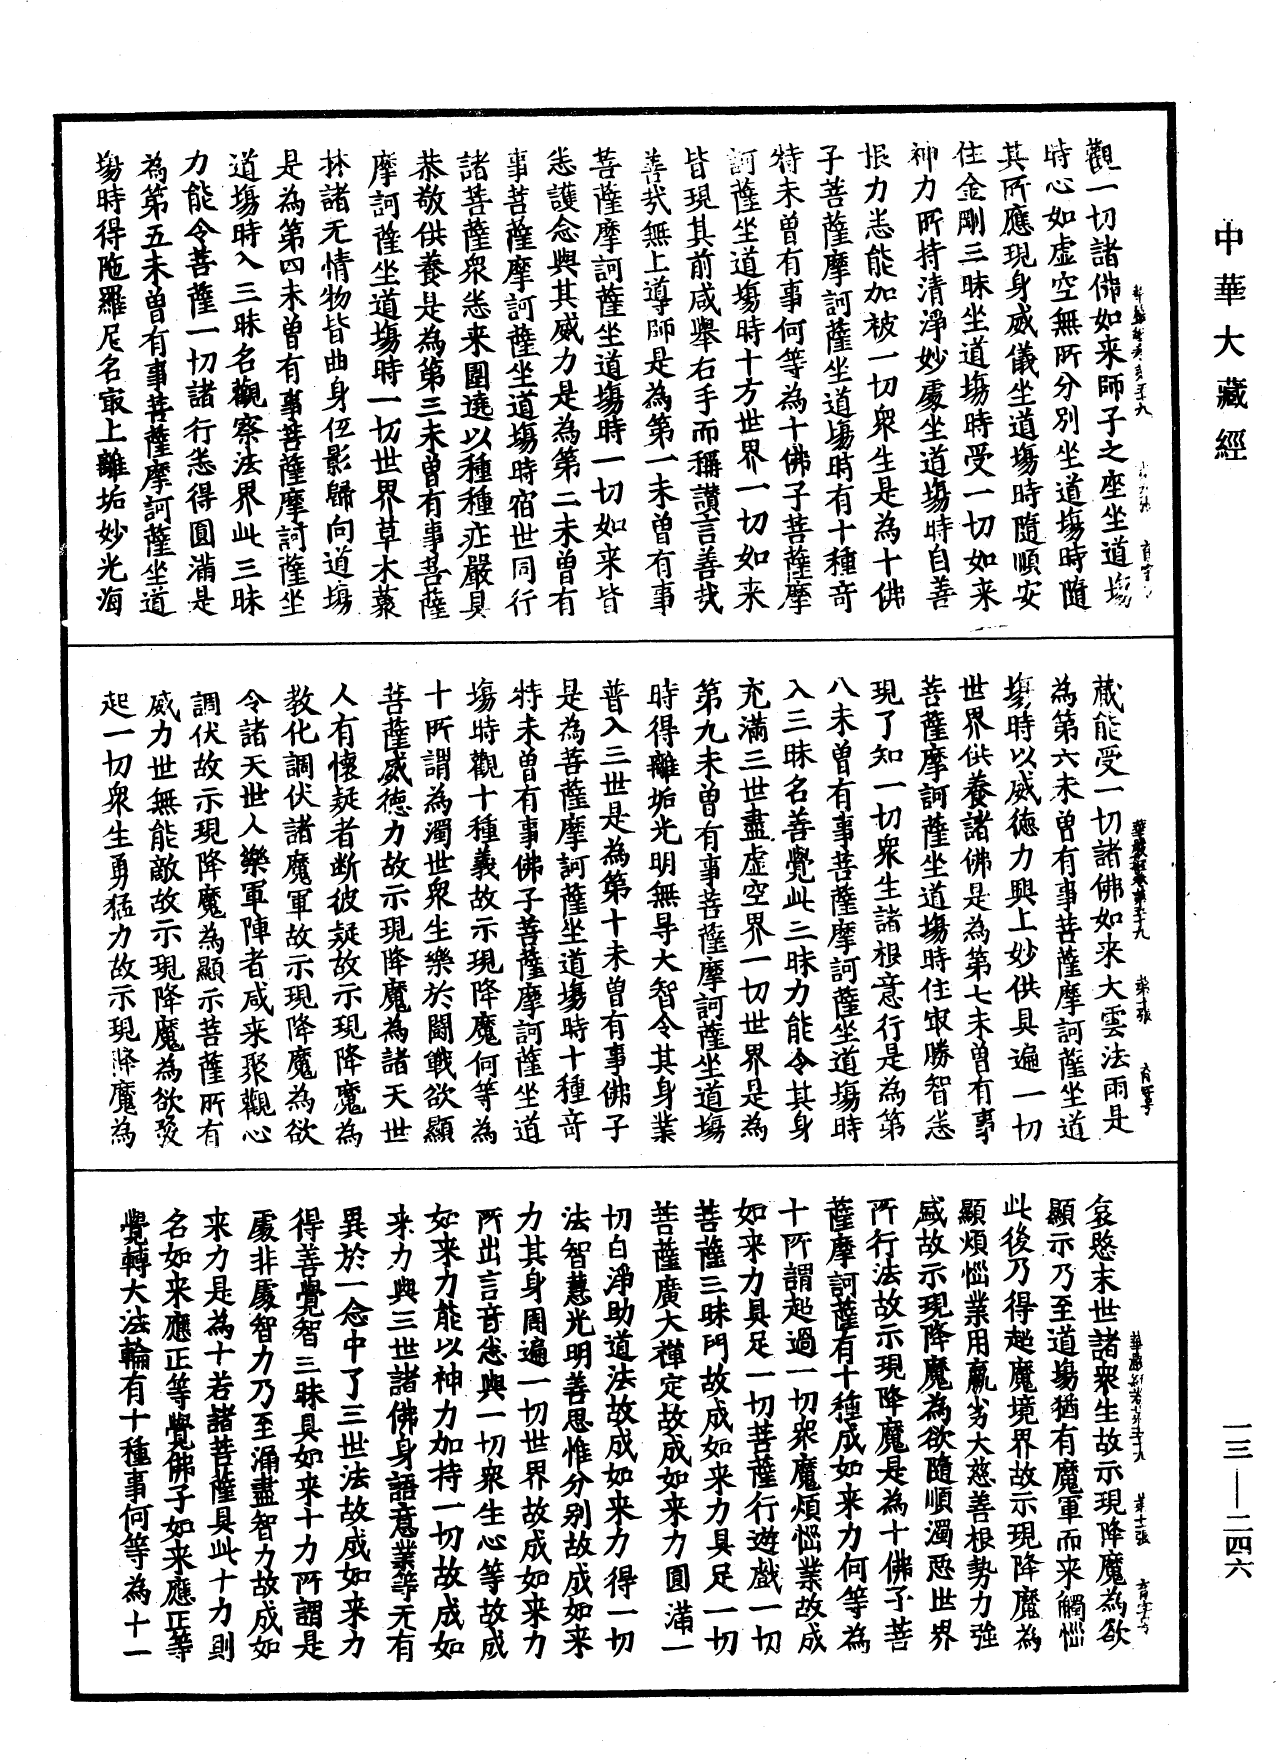 中華大藏經
觀一切諸佛如来師子之座坐道場
時心如虚空無所分别坐道場時隨
其所應現身威儀坐道場時隨順安
住金剛三昧坐道場時受一切如来
神力所持清淨妙處坐道場時自善
根力悉能加被一切衆生是為十佛
子菩薩摩訶薩坐道場時有十種奇
特未曽有事何等為十佛子菩薩摩
訶薩坐道場時十方世界一切如来
皆現其前咸舉右手而稱讃言善㢤
善㢤無上導師是為第一未曽有事
菩薩摩訶薩坐道場時一切如来皆
悉護念與其威力是為第二未曽有
事菩薩摩訶薩坐道場時宿世同行
諸菩薩衆悉来圍遶以種種莊嚴具
恭敬供養是為第三未曽有事菩薩
摩訶薩坐道場時一切世界草木藂
林諸无情物皆曲身伍影歸向道場
是為第四未曽有事菩薩摩訶薩坐
道場時入三昧名觀察法界此三昧
力能令菩薩一切諸行悉得圓滿是
為第五未曽有事菩薩摩訶薩坐道
場時得陁羅尼名冣上離垢妙光海
蔵能受一切諸佛如来大雲法雨是
為第六未曽有事菩薩摩訶薩坐道
場時以威徳力興上妙供具遍一切
世界供養諸佛是為第七未曽有事
菩薩摩訶薩坐道場時住冣勝智悉
現了知一切衆生諸根意行是為第
八未曽有事菩薩摩訶薩坐道場時
入三昧名善覺此三昧力能令其身
充滿三世盡虚空界一切世界是為
第九未曽有事菩薩摩訶薩坐道場
時得離垢光明無㝵大智令其身業
普入三世是為第十未曽有事佛子
是為菩薩摩訶薩坐道場時十種奇
特未曽有事佛子菩薩摩訶薩坐道
場時觀十種義故示現降魔何等為
十所謂為濁世衆生樂於鬪戰欲顯
菩薩威徳力故示現降魔為諸天世
人有懷疑者断彼疑故示現降魔為
教化調伏諸魔軍故示現降魔為欲
令諸天世人樂軍陣者咸来聚觀心
調伏故示現降魔為顯示菩薩所有
威力世無能敵故示現降魔為欲發
起一切衆生勇猛力故示現降魔為
哀愍末世諸衆生故示現降魔為欲
顯示乃至道場猶有魔軍而来觸惱
此後乃得超魔境界故示現降魔為
顯煩惱業用羸劣大慈善根勢力強
盛故示現降魔為欲隨順濁惡世界
所行法故示現降魔是為十佛子菩
薩摩訶薩有十種成如来力何等為
十所謂超過一切衆魔煩惱業故成
如来力具足一切菩薩行遊戲一切
菩薩三昧門故成如来力具足一切
菩薩廣大禪定故成如来力圓滿一
切白淨助道法故成如来力得一切
法智慧光明善思惟分别故成如来
力其身周遍一切世界故成如来力
所出言音悉與一切衆生心等故成
如来力能以神力加持一切故成如
来力與三世諸佛身語意業等无有
異於一念中了三世法故成如来力
得善覺智三昧具如来十力所謂是
處非處智力乃至漏盡智力故成如
来力是為十若諸菩薩具此十力則
名如来應正等覺佛子如来應正等
覺轉大法輪有十種事何等為十一
一三—二四六